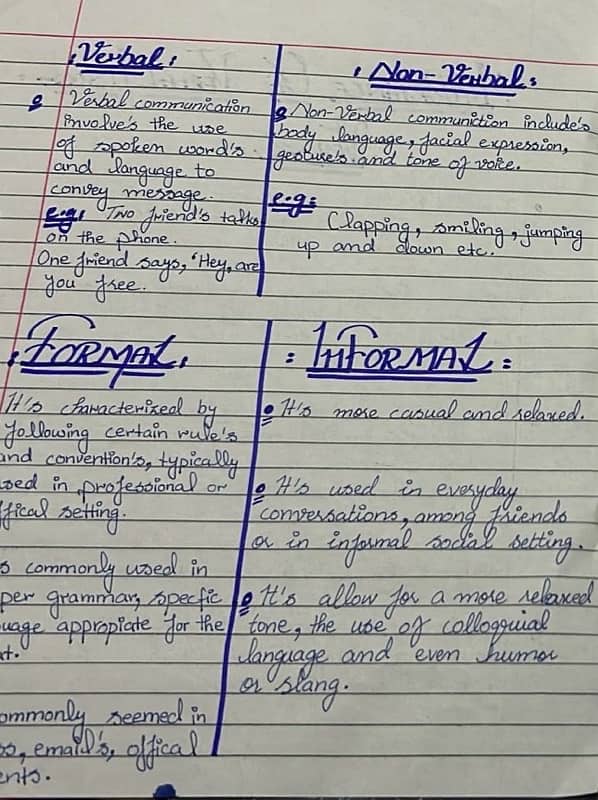 Verbal:
Verbal communication
involve's the use
of spoken word's
and language to
convey message.
e.g: Two friend's talks
on the phone.
One friend says, "Hey, are
you free.
: Non-Verbal:
Non-Verbal communiction include's
body language, facial expression,
gesture's and tone of voice.
e.g:
Clapping, smiling, jumping
up and down etc.
: FORMAL:
It's characterized by
following certain rule's
and convention's, typically
used in professional or
offical setting.
commonly used in
per grammar, specfic
uage appropiate for the
commonly seemed in
email's, offical
ents.
: InFORMAL:
It's more casual and relaxed.
It's used in everyday
conversations, among friends
or in informal social setting.
It's allow for a more relaxed
tone, the use of colloquial
language and even humor
or slang.